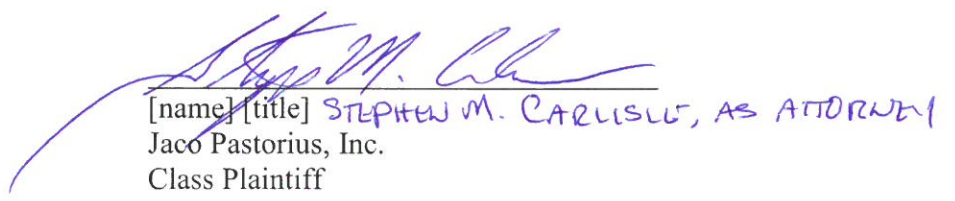 Stephen M. Carlisle
[name] [title] STEPHEN M. CARLISLE, AS ATTORNEY
Jaco Pastorius, Inc.
Class Plaintiff